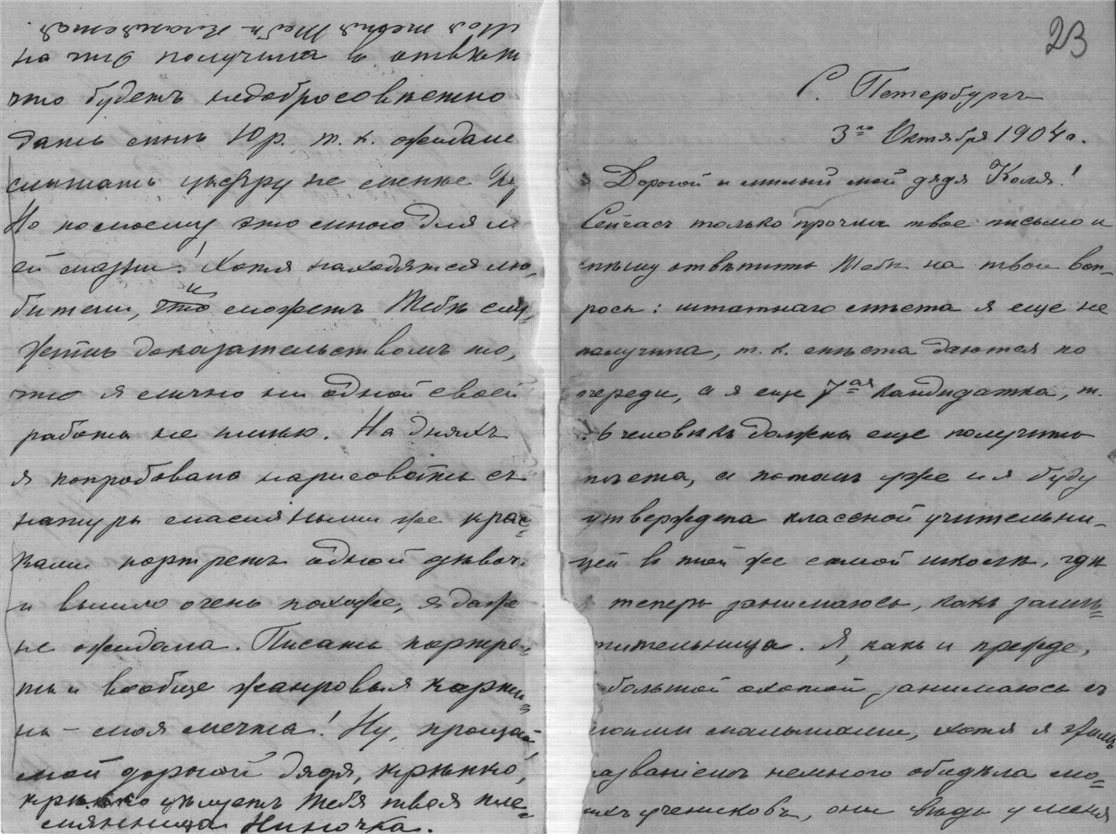 Тебѣ кланяется
на что получила в отвѣтъ
что будетъ недобросовѣстно
дать мнѣ т. к. ожидали
слышать цыфру не менѣе
Но по моему это много для
ей мазни! Хотя находятся лю-
бители, и это может Тебѣ слу-
жить доказательствомъ то,
что я лично ни одной своей
работы не имѣю. На дняхъ
я попробовала нарисовать съ
натуры масляными же крас-
ками портретъ одной дѣвоч.
и вышло очень похоже, я даже
не ожидала. Писать портре-
ты и вообще жанровыя карти-
ны – моя мечта! Ну, прощай,
мой дорогой дядя, крѣпко,
крѣпко цѣлуетъ Тебя твоя пле-
мянница Ниночка.
23
С. Петербургъ
3го Октября 1904 г.
Дорогой и милый мой дядя Коля!
Сейчасъ только прочла твое письмо и
спѣшу отвѣтить Тебѣ на твои воп-
росы: штатнаго мѣста я еще не
получила, т. к. мѣста даются по
очереди, а я еще 7ая кандидатка, т.
6 человѣкъ должны еще получить
мѣста, а потомъ уже и я буду
утверждена классной учительни-
цей в той же самой школѣ, гдѣ
теперь занимаюсь, какъ замѣ-
стительница. Я, какъ и прежде,
большой охотой занимаюсь съ
моими малышами, хотя я этимъ
названіемъ немного обидѣла мо-
ихъ учениковъ, они вѣдь у меня